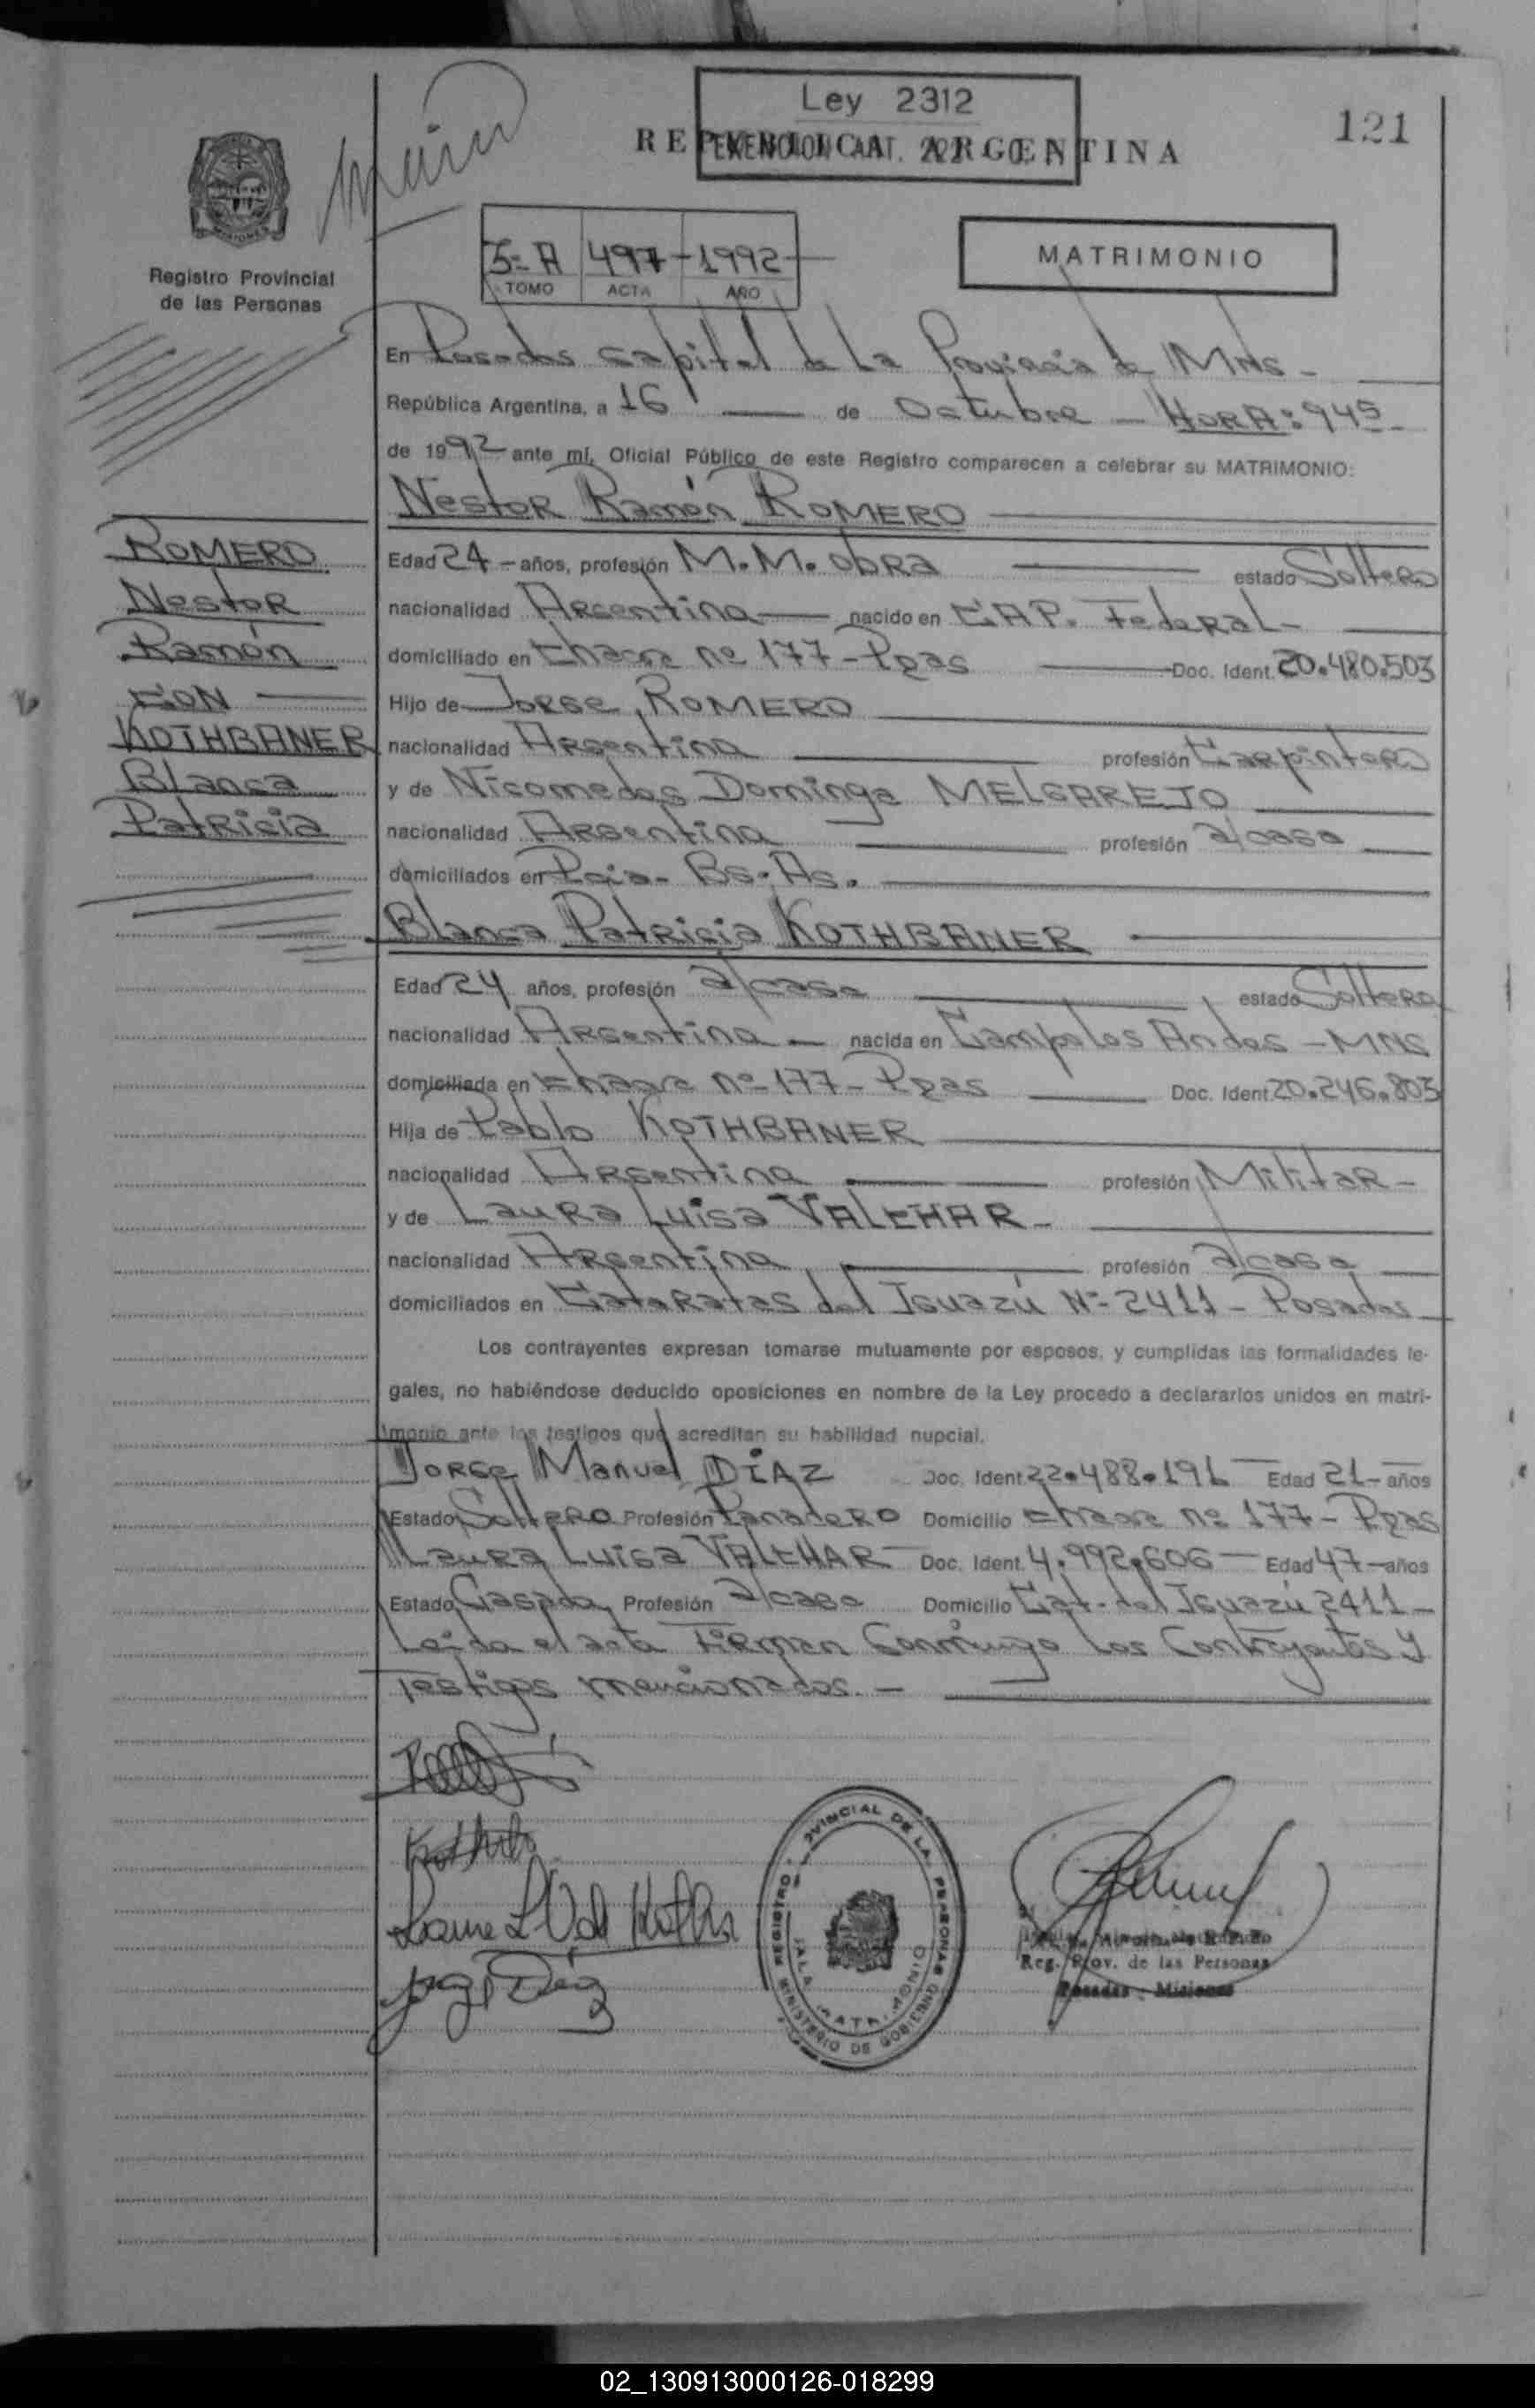 Ley 2312
121
REPUBLICA ARGENTINA
EXENCION ART.
5-A 497-1992
TOMO ACTA AÑO
MATRIMONIO
Registro Provincial
de las Personas
En Posadas capital de La Provincia de MNS-
República Argentina, a 16 de Octubre - HORA: 945-
de 1992 ante mí, Oficial Público de este Registro comparecen a celebrar su MATRIMONIO:
Nestor Ramón ROMERO
ROMERO
Nestor
Ramón
CON
KOTHBANER
Blanca
Patricia
Edad 24 - años, profesión M.M. obra estado Soltero
nacionalidad Argentina nacido en CAP. Federal-
domiciliado en Chacra nº 177-Pdas Doc. Ident. 20.480.503
Hijo de Jorge ROMERO
nacionalidad Argentina profesión Carpintero
y de Nicomedes Dominga MELGAREJO
nacionalidad Argentina profesión a/casa
domiciliados en Pcia- Bs. As.
Blanca Patricia KOTHBANER
Edad 24 años, profesión a/casa estado Soltera
nacionalidad Argentina nacida en Campo los Andes - MNS
domiciliada en Chacra Nº 177- Pdas Doc. Ident. 20.246.803
Hija de Pablo KOTHBANER
nacionalidad Argentina profesión Militar-
y de Laura Luisa VALCHAR-
nacionalidad Argentina profesión a/casa
domiciliados en Cataratas del Iguazú Nº 2411- Posadas
Los contrayentes expresan tomarse mutuamente por esposos, y cumplidas las formalidades le-
gales, no habiéndose deducido oposiciones en nombre de la Ley procedo a declararlos unidos en matri-
monio ante los testigos que acreditan su habilidad nupcial.
Jorge Manuel DIAZ Doc. Ident. 22.488.196 Edad 21- años
Estado Soltero Profesión Panadero Domicilio Chacra nº 177- Pdas
Laura Luisa VALCHAR Doc. Ident. 4.992.606 Edad 47 años
Estado Casada Profesión a/casa Domicilio Cat. del Iguazú 2411-
Leída el acta Firman Conmigo los Contrayentes y
Testigos mencionados.-
REGISTRO PROVINCIAL DE LAS PERSONAS
MINISTERIO DE GOBIERNO
SALA MATRIMONIO
Jorge Díaz
Reg. Prov. de las Personas
Posadas - Misiones
02_130913000126-018299